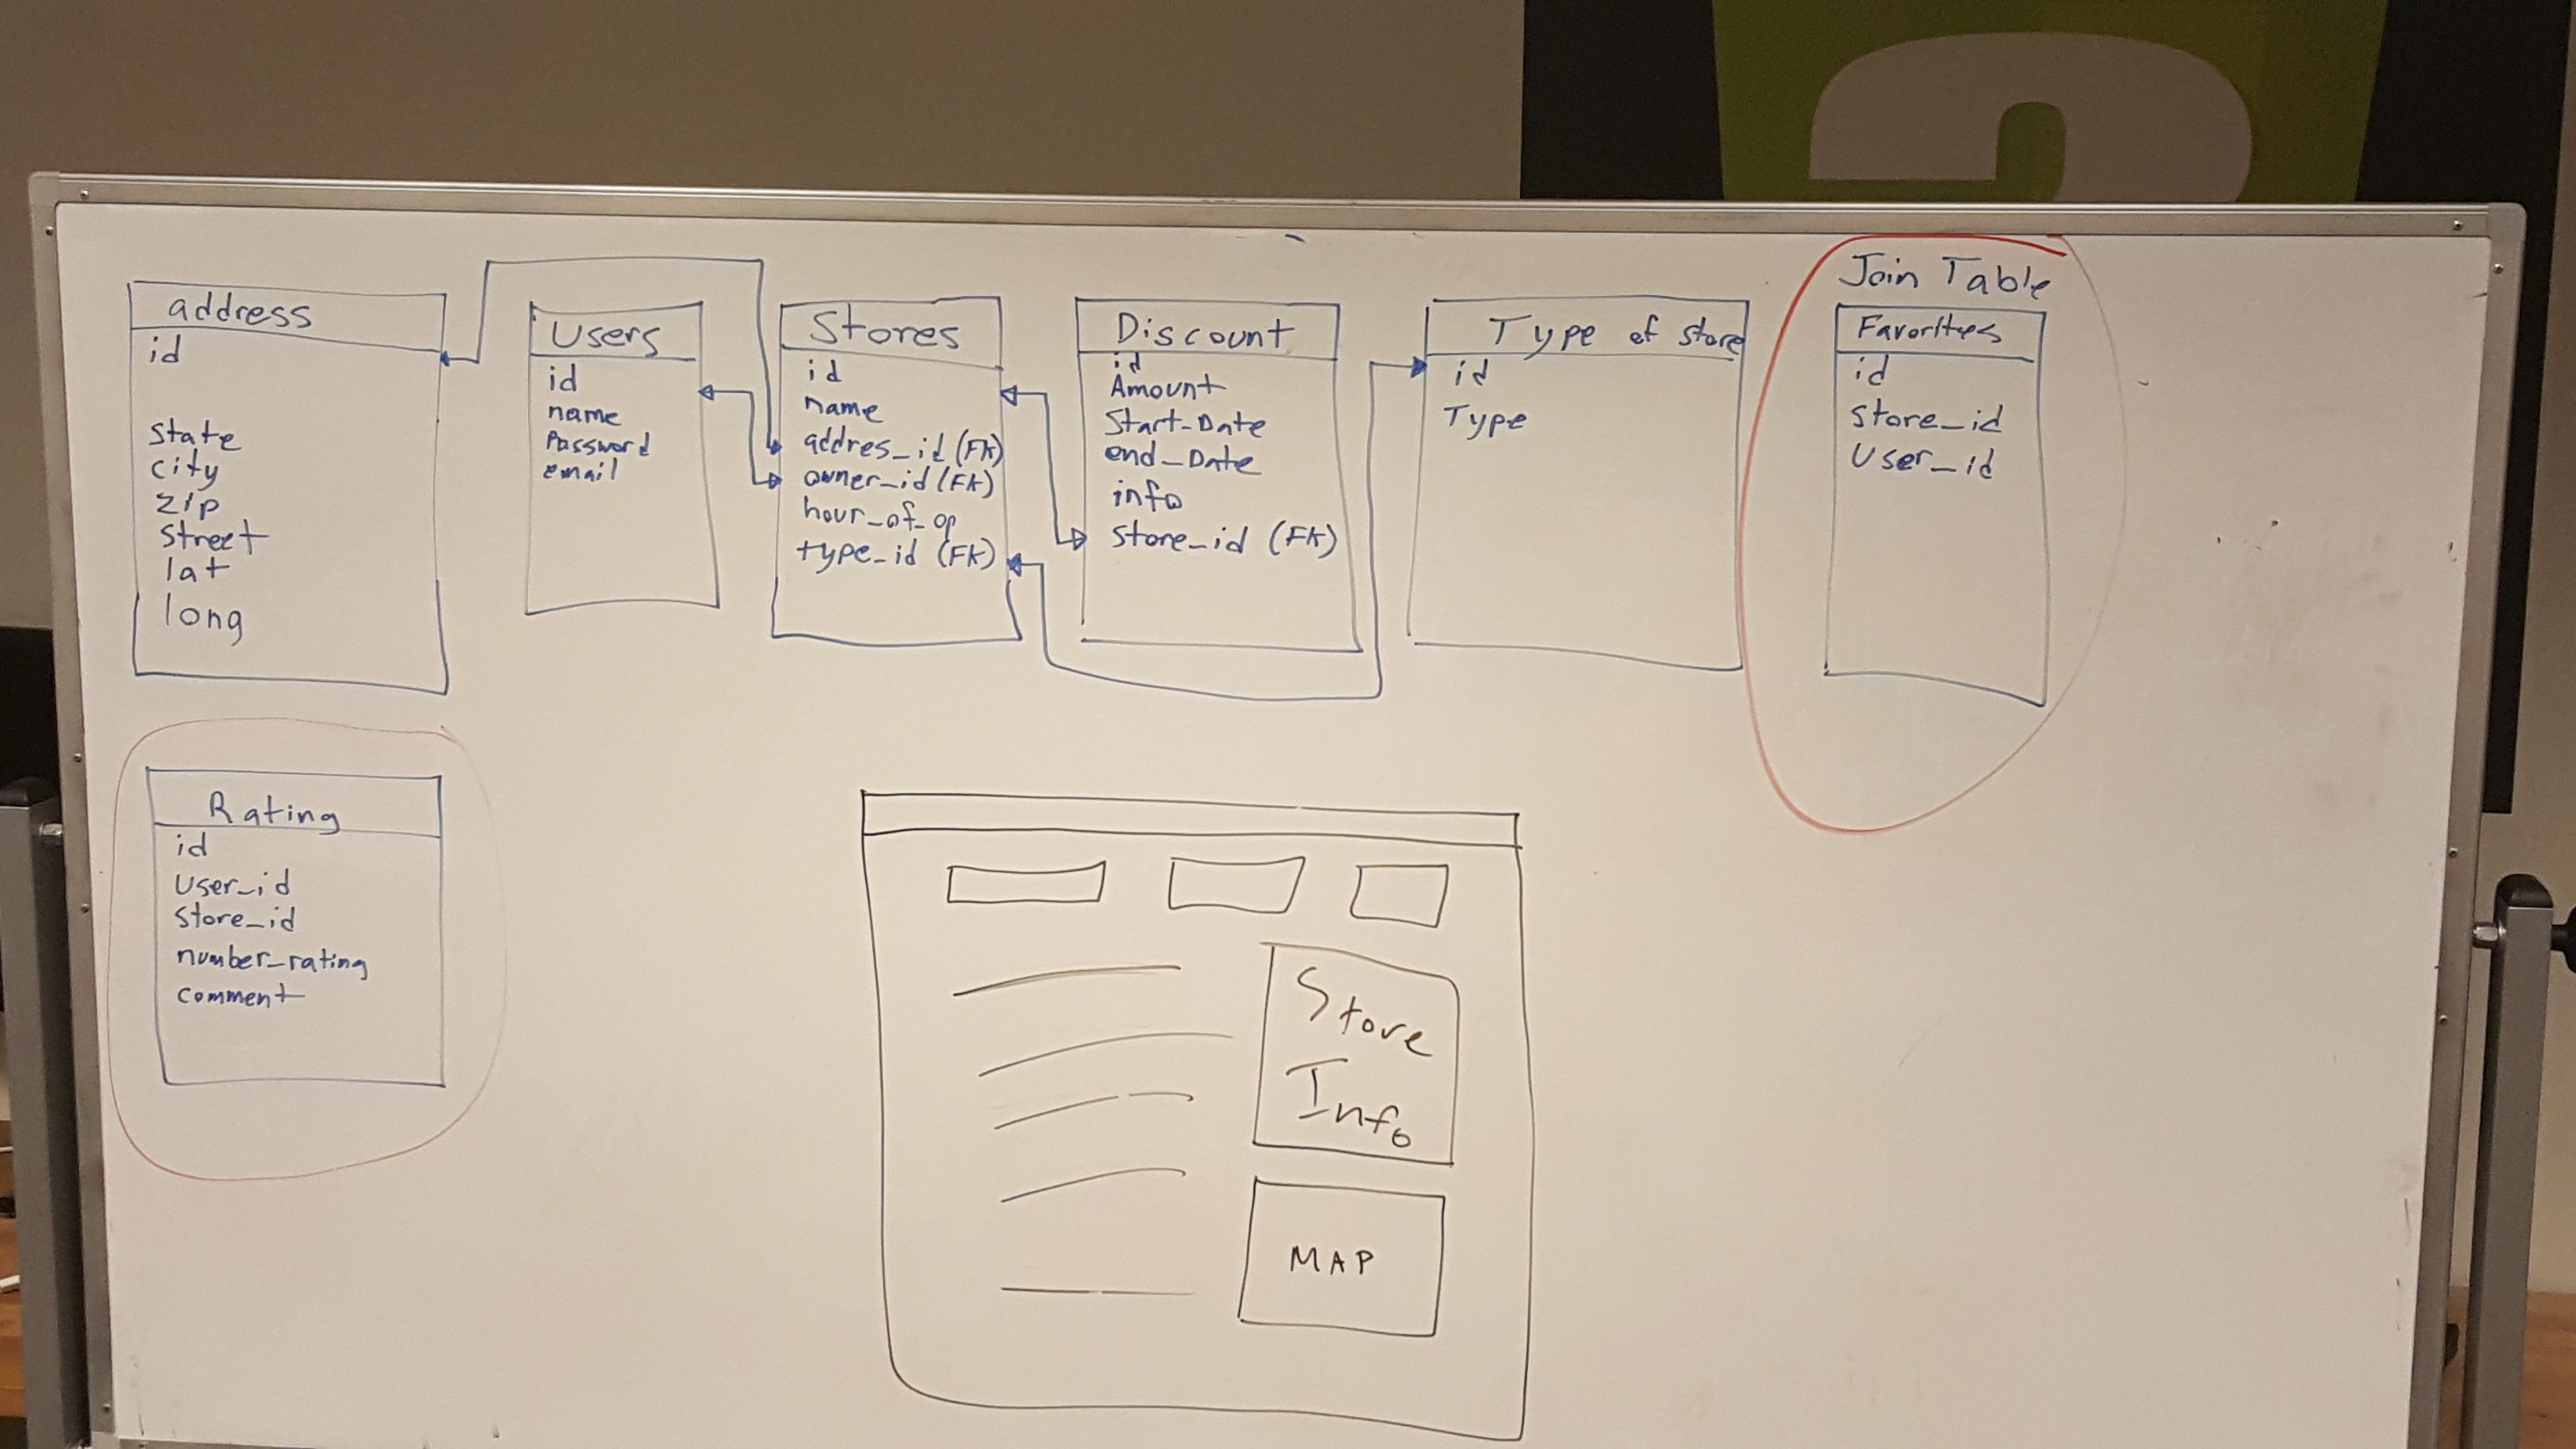 address
id
state
city
zip
street
lat
long
Users
id
name
Password
email
Stores
id
name
addres_id (FK)
owner_id (FK)
hour_of_op
type_id (FK)
Discount
id
Amount
Start-Date
end_Date
info
store_id (FK)
Type of store
id
Type
Join Table
Favorites
id
store_id
User_id
Rating
id
User_id
store_id
number_rating
comment
Store
Info
MAP